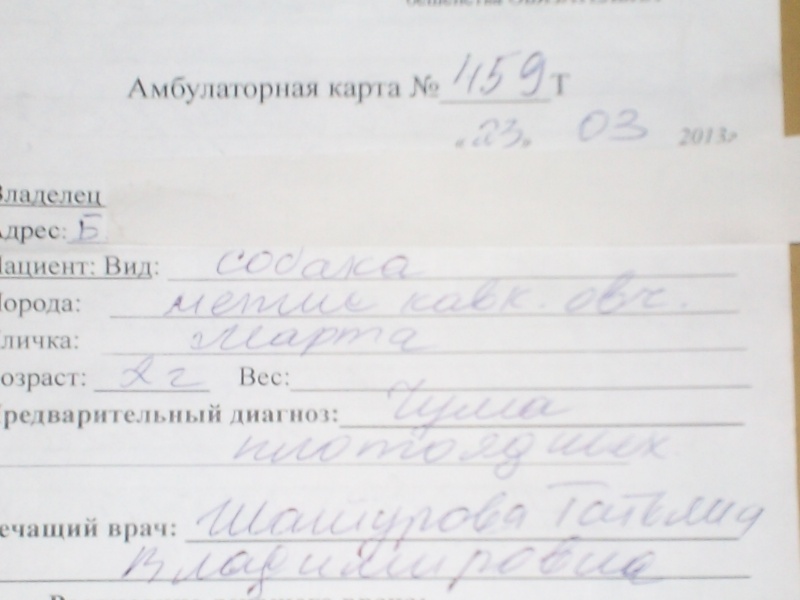 Амбулаторная карта № 459 Т
«23» 03 2013г
Владелец
Адрес: Б
Пациент: Вид: собака
Порода: метис кавк. овч.
Кличка: Марта
Возраст: 2 г Вес:
Предварительный диагноз: Чума
плотоядных
Лечащий врач: Татьяна
Владимировна